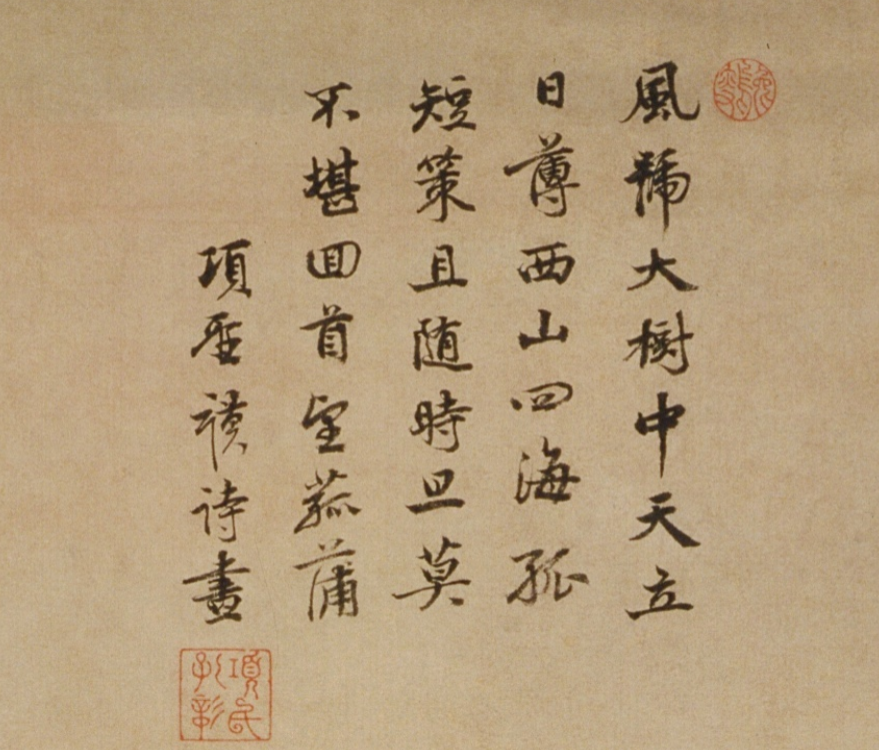 風號大樹中天立
日薄西山四海孤
短策且随時旦莫
不堪囬首望菰蒲
項聖謨詩畫
項氏孔彰